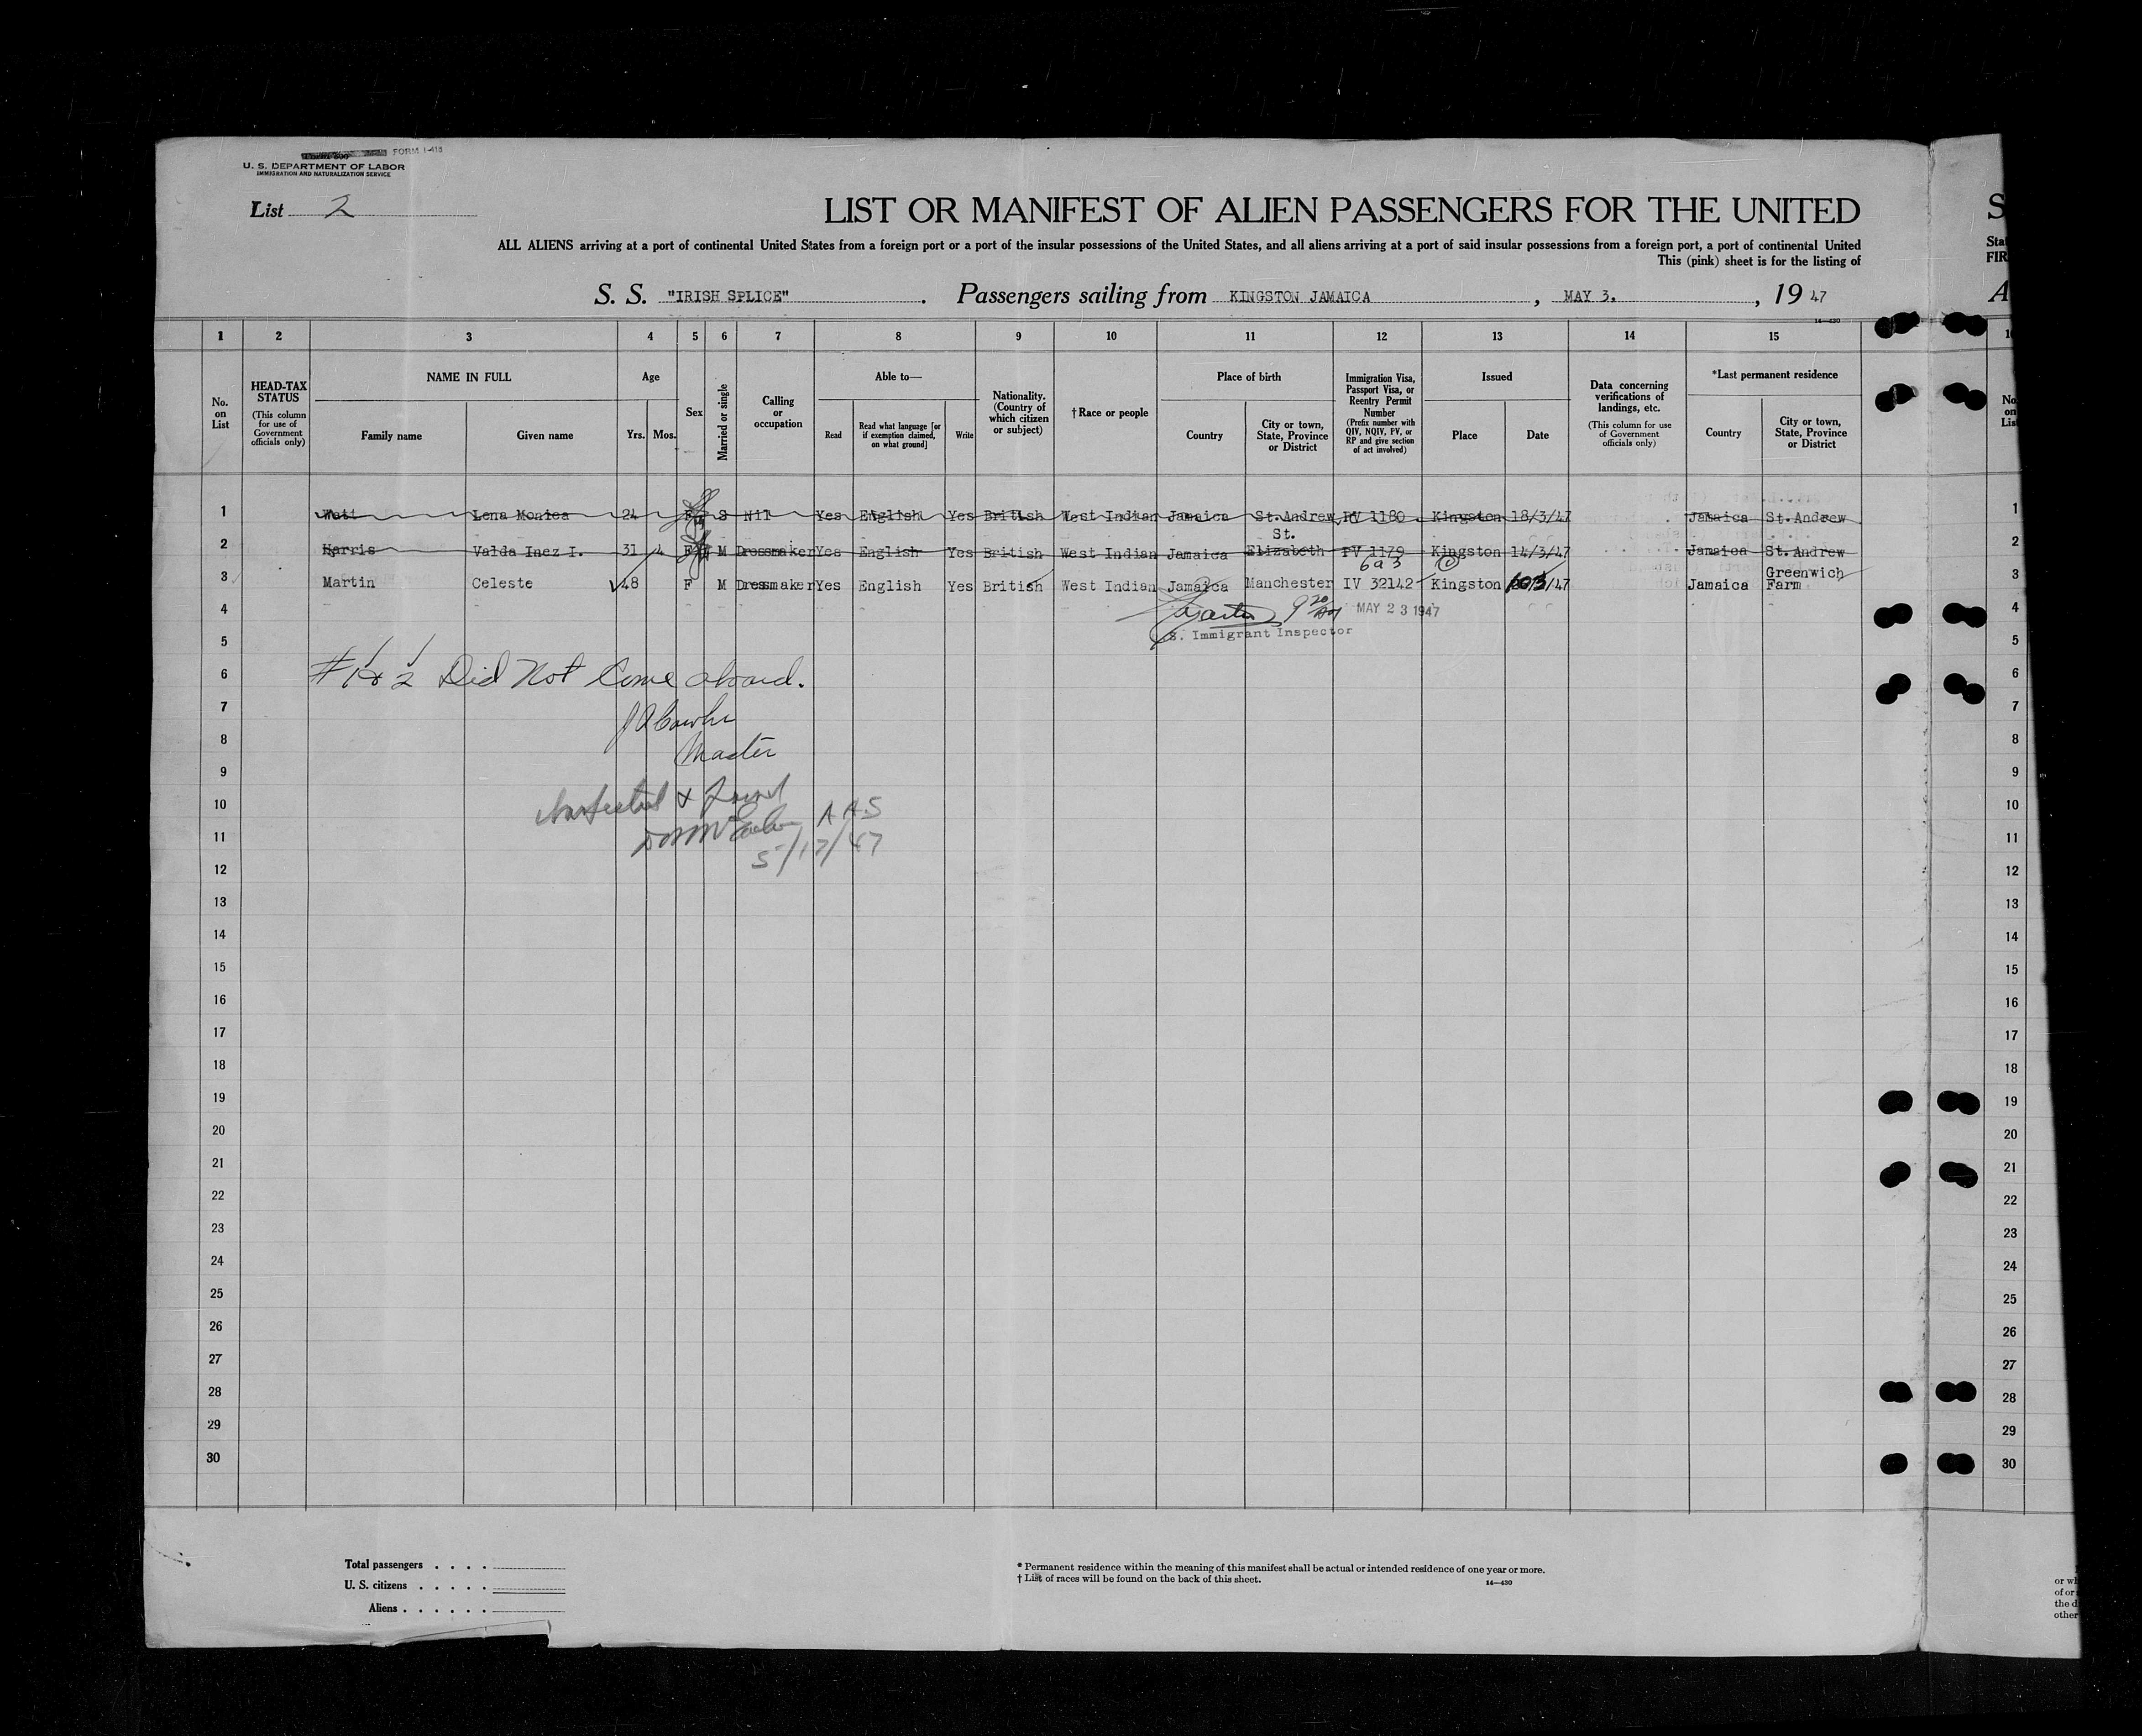 FORM I-418
U. S. DEPARTMENT OF LABOR
IMMIGRATION AND NATURALIZATION SERVICE
List 2
LIST OR MANIFEST OF ALIEN PASSENGERS FOR THE UNITED
S
ALL ALIENS arriving at a port of continental United States from a foreign port or a port of the insular possessions of the United States, and all aliens arriving at a port of said insular possessions from a foreign port, a port of continental United
Sta
This (pink) sheet is for the listing of
FIR
S. S. "IRISH SPLICE". Passengers sailing from KINGSTON JAMAICA, MAY 3., 1947
A
14—430
1 2 3 4 5 6 7 8 9 10 11 12 13 14 15
No. on List
HEAD-TAX STATUS
(This column for use of Government officials only)
NAME IN FULL
Family name
Given name
Age
Yrs.
Mos.
Sex
Married or single
Calling or occupation
Able to—
Read
Read what language [or if exemption claimed, on what ground]
Write
Nationality. (Country of which citizen or subject)
† Race or people
Place of birth
Country
City or town, State, Province or District
Immigration Visa, Passport Visa, or Reentry Permit Number
(Prefix number with QIV, NQIV, PV, or RP and give section of act involved)
Issued
Place
Date
Data concerning verifications of landings, etc.
(This column for use of Government officials only)
*Last permanent residence
Country
City or town, State, Province or District
No on List
1 Lena Monica 24 F S Nil Yes English Yes British West Indian Jamaica St. Andrew PV 1180 Kingston 18/3/47 Jamaica St. Andrew 1
2 Harris Valda Inez I. 31 4 F M Dressmaker Yes English Yes British West Indian Jamaica St. Elizabeth PV 1179 Kingston 14/3/47 Jamaica St. Andrew 2
6a3
3 Martin Celeste 48 F M Dressmaker Yes English Yes British West Indian Jamaica Manchester IV 32142 Kingston /47 Jamaica Greenwich Farm 3
4 MAY 23 1947 4
S. Immigrant Inspector
5 5
6 #1 & 2 Did Not Come aboard. 6
7 7
8 Master 8
9 9
10 10
11 11
5/17/47
12 12
13 13
14 14
15 15
16 16
17 17
18 18
19 19
20 20
21 21
22 22
23 23
24 24
25 25
26 26
27 27
28 28
29 29
30 30
Total passengers . . . .
U. S. citizens . . . . .
Aliens . . . . . .
* Permanent residence within the meaning of this manifest shall be actual or intended residence of one year or more.
† List of races will be found on the back of this sheet.
14—430
or wh
of or
the d
other